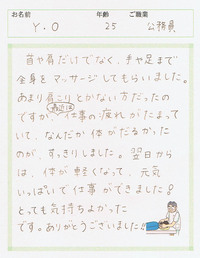 お名前 年齢 ご職業
Y.O 25 公務員
首や肩だけでなく、手や足まで
全身をマッサージしてもらいました。
あまり肩こりとかない方だったの
ですが、最近は仕事の疲れがたまって
いて、なんだか体がだるかった
のが、すっきりしました。翌日から
は、体が軽くなって、元気
いっぱいで仕事ができました!
とっても気持ちよかった
です。ありがとうございました!!